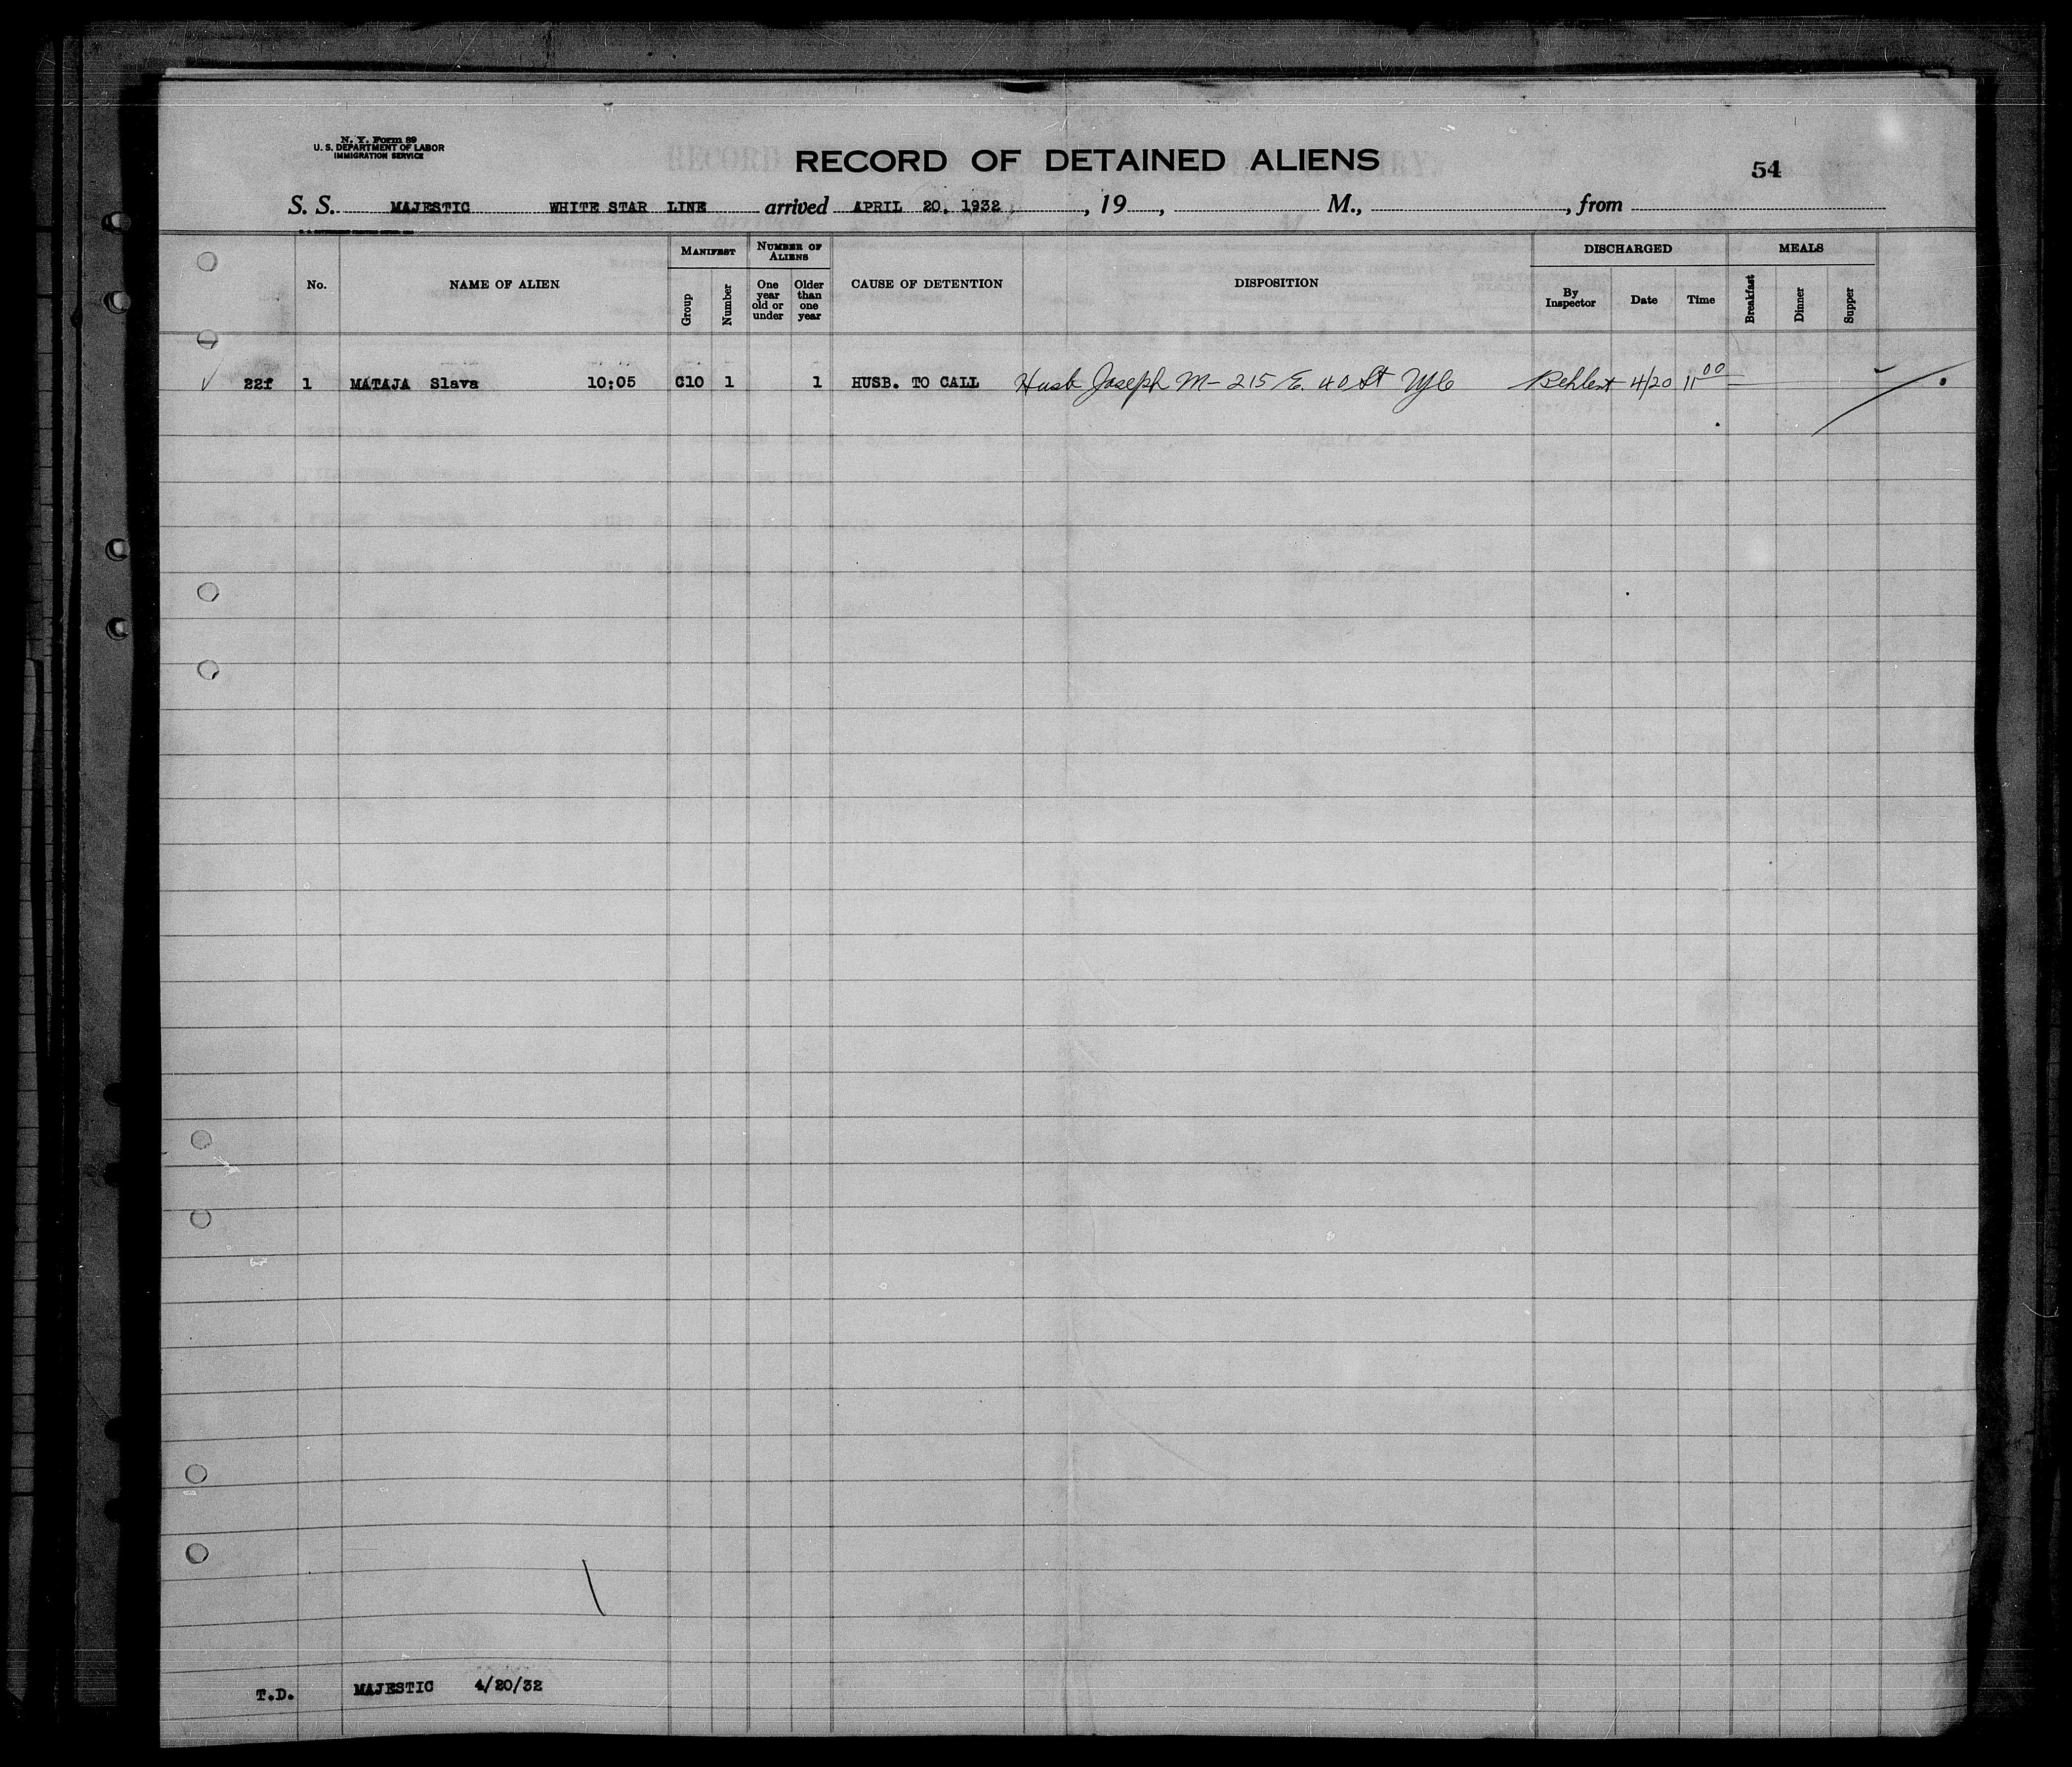 N. Y. Form 89
U. S. DEPARTMENT OF LABOR
IMMIGRATION SERVICE
RECORD OF DETAINED ALIENS
54
S. S. MAJESTIC WHITE STAR LINE arrived APRIL 20, 1932, 19, M., , from
MANIFEST NUMBER OF ALIENS DISCHARGED MEALS
No. NAME OF ALIEN Group Number One year old or under Older than one year CAUSE OF DETENTION DISPOSITION By Inspector Date Time Breakfast Dinner Supper
22f 1 MATAJA Slava 10:05 C10 1 1 HUSB. TO CALL Husb Joseph M- 215 E. 40 St NYC 4/20 11 00
T.D. MAJESTIC 4/20/32